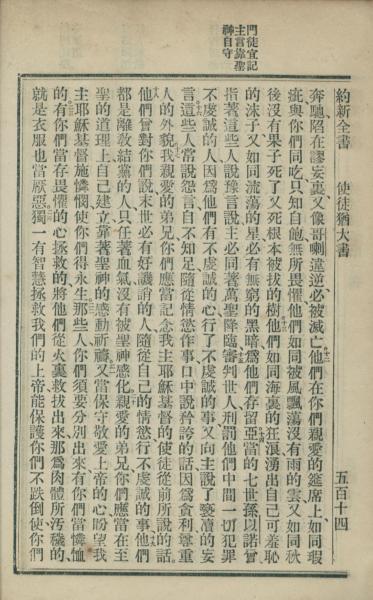 門徒宜記
主言靠聖
神自守
約新全書　使徒猶大書　五百十四
奔馳陷在謬妄裏又像哥喇違逆必被滅亡他們在你們親愛的筵席上如同瑕
疵與你們同吃只知自飽無所畏懼他們如同被風飄蕩沒有雨的雲又如同秋
後沒有果子死了又死根本被拔的樹他們如同海裏的狂浪湧出自己可羞恥
的沫子又如同流蕩的星必有無窮的黑暗爲他們存留亞當的七世孫以諾曾
指著這些人說豫言說主必同著萬聖降臨審判世人刑罰他們中間一切犯罪
不虔誠的人因爲他們有不虔誠的心行了不虔誠的事又向主說了褻瀆的妄
言這些人常說怨言自不知足隨從情慾作事口中說矜誇的話因爲貪利尊重
人的外貌我親愛的弟兄你們應當記念我主耶穌基督的使徒從前所說的話
他們曾對你們說末世必有好譏誚的人隨從自己的情慾行不虔誠的事他們
都是離敎結黨的人只任著血氣沒有被聖神感化親愛的弟兄你們應當在至
聖的道理上自己建立靠著聖神的感動祈禱又當保守敬愛上帝的心盼望我
主耶穌基督施憐憫使你們得永生那些人你們須要分別出來有你們當憐恤
的有你們當存畏懼的心拯救的將他們從火裏救拔出來那爲肉體所污穢的
就是衣服也當厭惡獨一有智慧拯救我們的上帝能保護你們不跌倒使你們